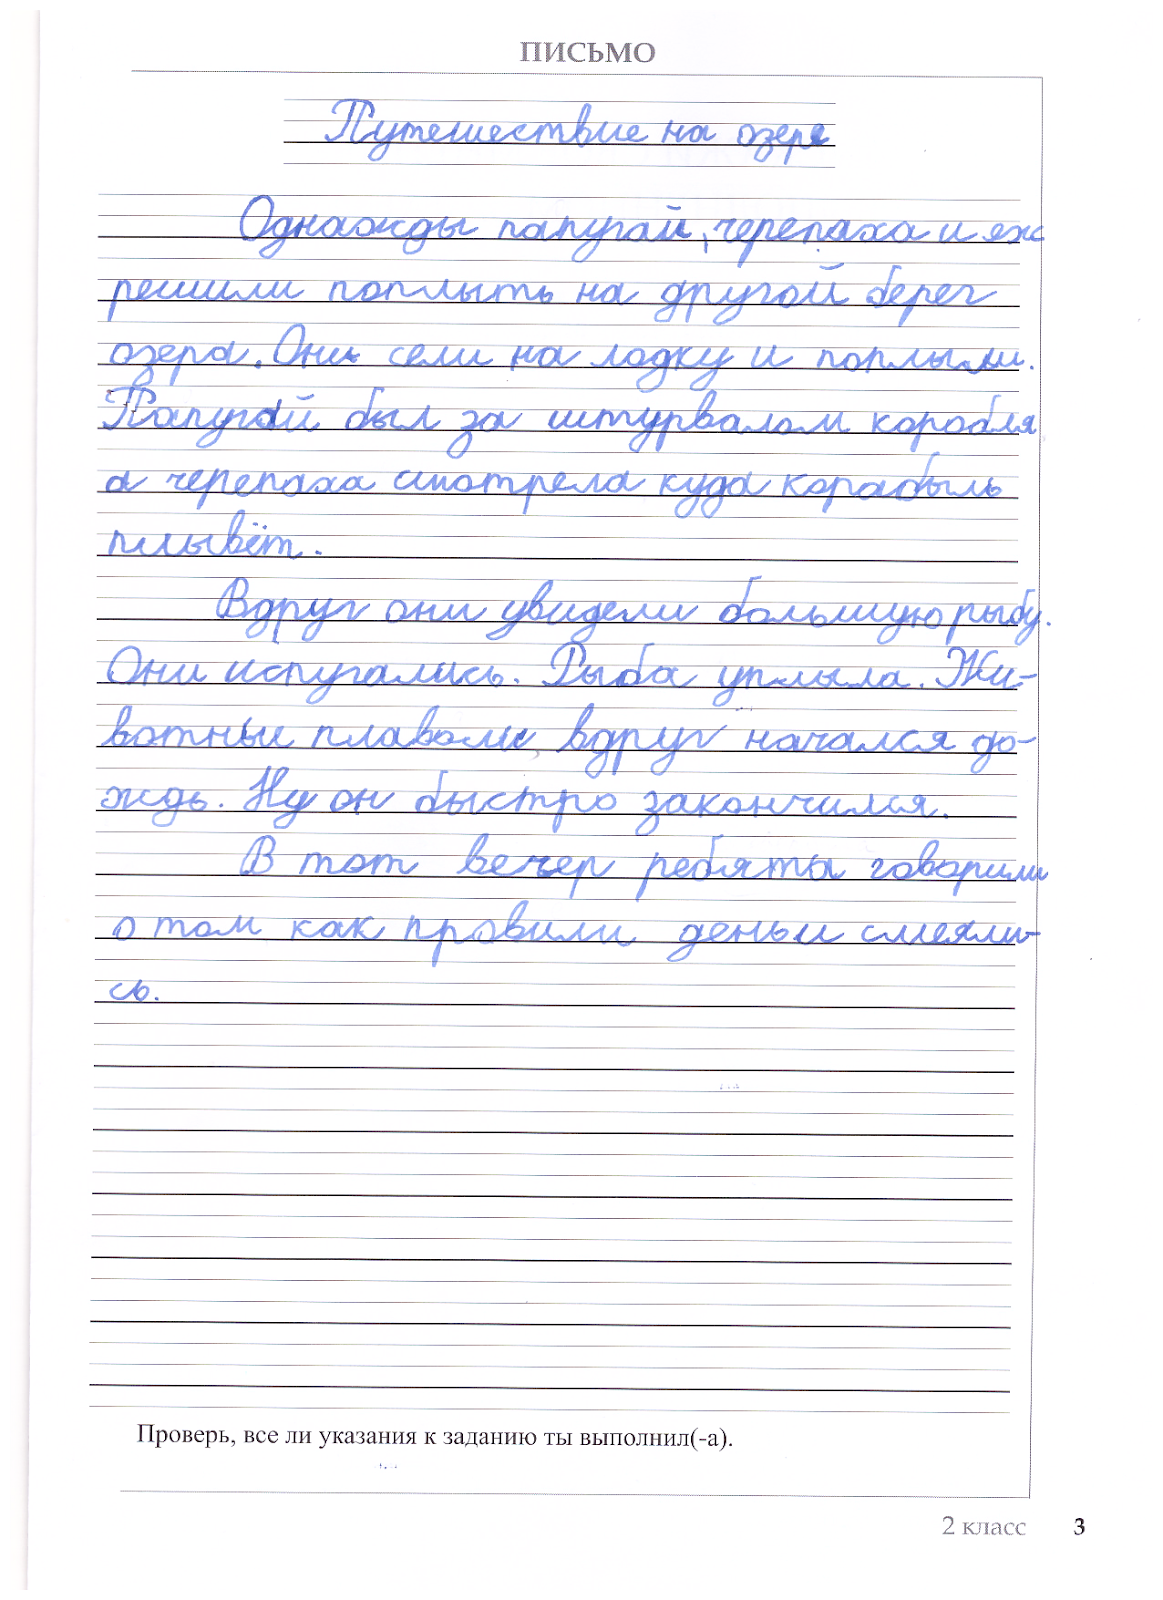 ПИСЬМО
Путешествие на озере
Однажды папугай, черепаха и еж
решили поплыть на другой берег
озера. Они сели на лодку и поплыли.
Папугай был за штурвалом коробля
а черепаха смотрела куда корабыль
плывёт.
Вдруг они увидели большую рыбу.
Они испугались. Рыба уплыла. Жи-
вотные плавали, вдруг начался до-
ждь. Ну он быстро закончился.
В тот вечер ребяты говорили
о том как провили день и смеяли-
сь.
Проверь, все ли указания к заданию ты выполнил(-а).
2 класс 3